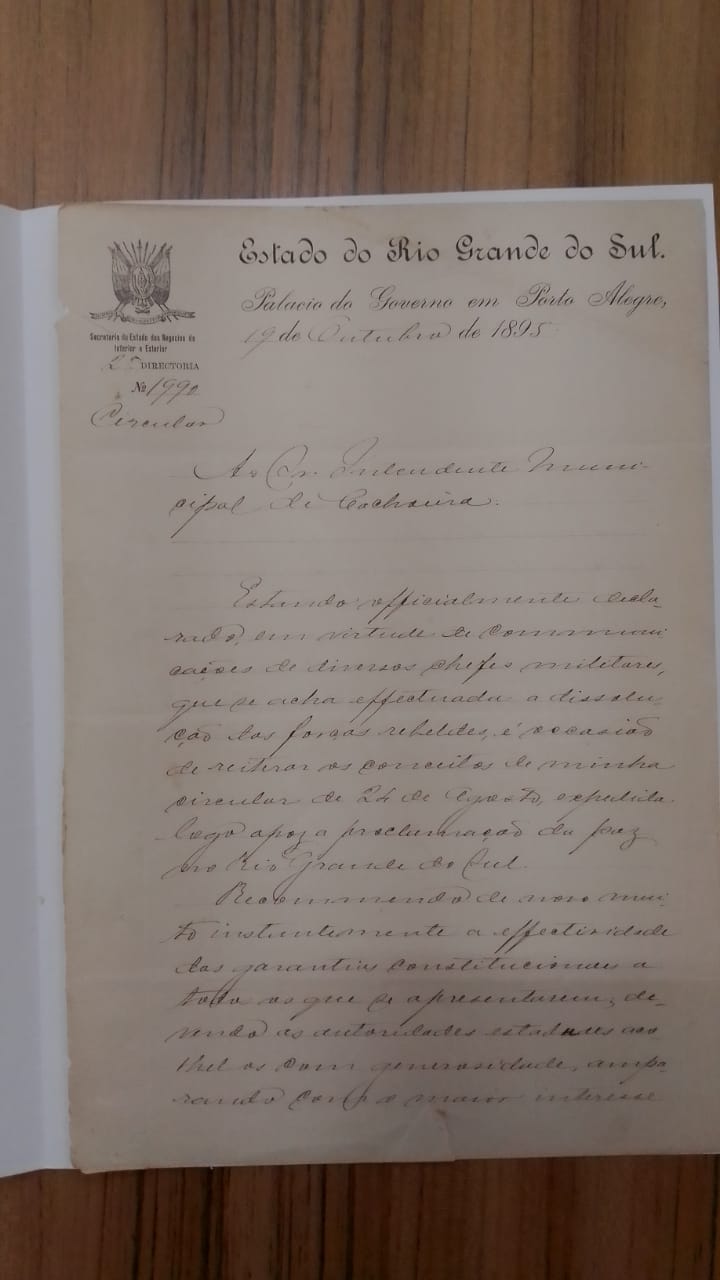 Estado do Rio Grande do Sul.
Palacio do Governo em Porto Alegre,
19 de Outubro de 1895
Secretaria do Estado dos Negocios do
Interior e Exterior
2ª DIRECTORIA
Nº 1990
Circular
Ao Cr. Intendente Muni-
cipal de Cachoeira.
Estando officialmente decla-
rado, em virtude de communi-
cações de diversos chefes militares,
que se acha effectuada a dissolu-
ção das forças rebeldes, é occasião
de reiterar os conceitos de minha
circular de 24 de Agosto, expedida
logo apoz a proclamação da paz
no Rio Grande do Sul.
Recommendo de novo mui-
to instantemente a effectividade
das garantias constitucionaes a
todos os que se apresentarem, de-
vendo as autoridades estadoaes aco-
lhel os com generosidade, ampa-
rando com o maior interesse